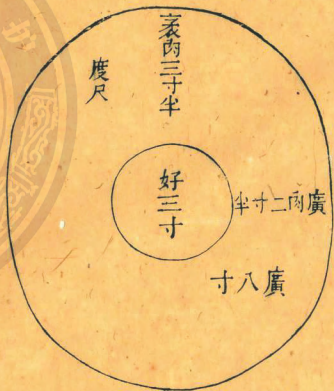 袤肉三寸半
度尺
好三寸
廣肉二寸半
廣八寸